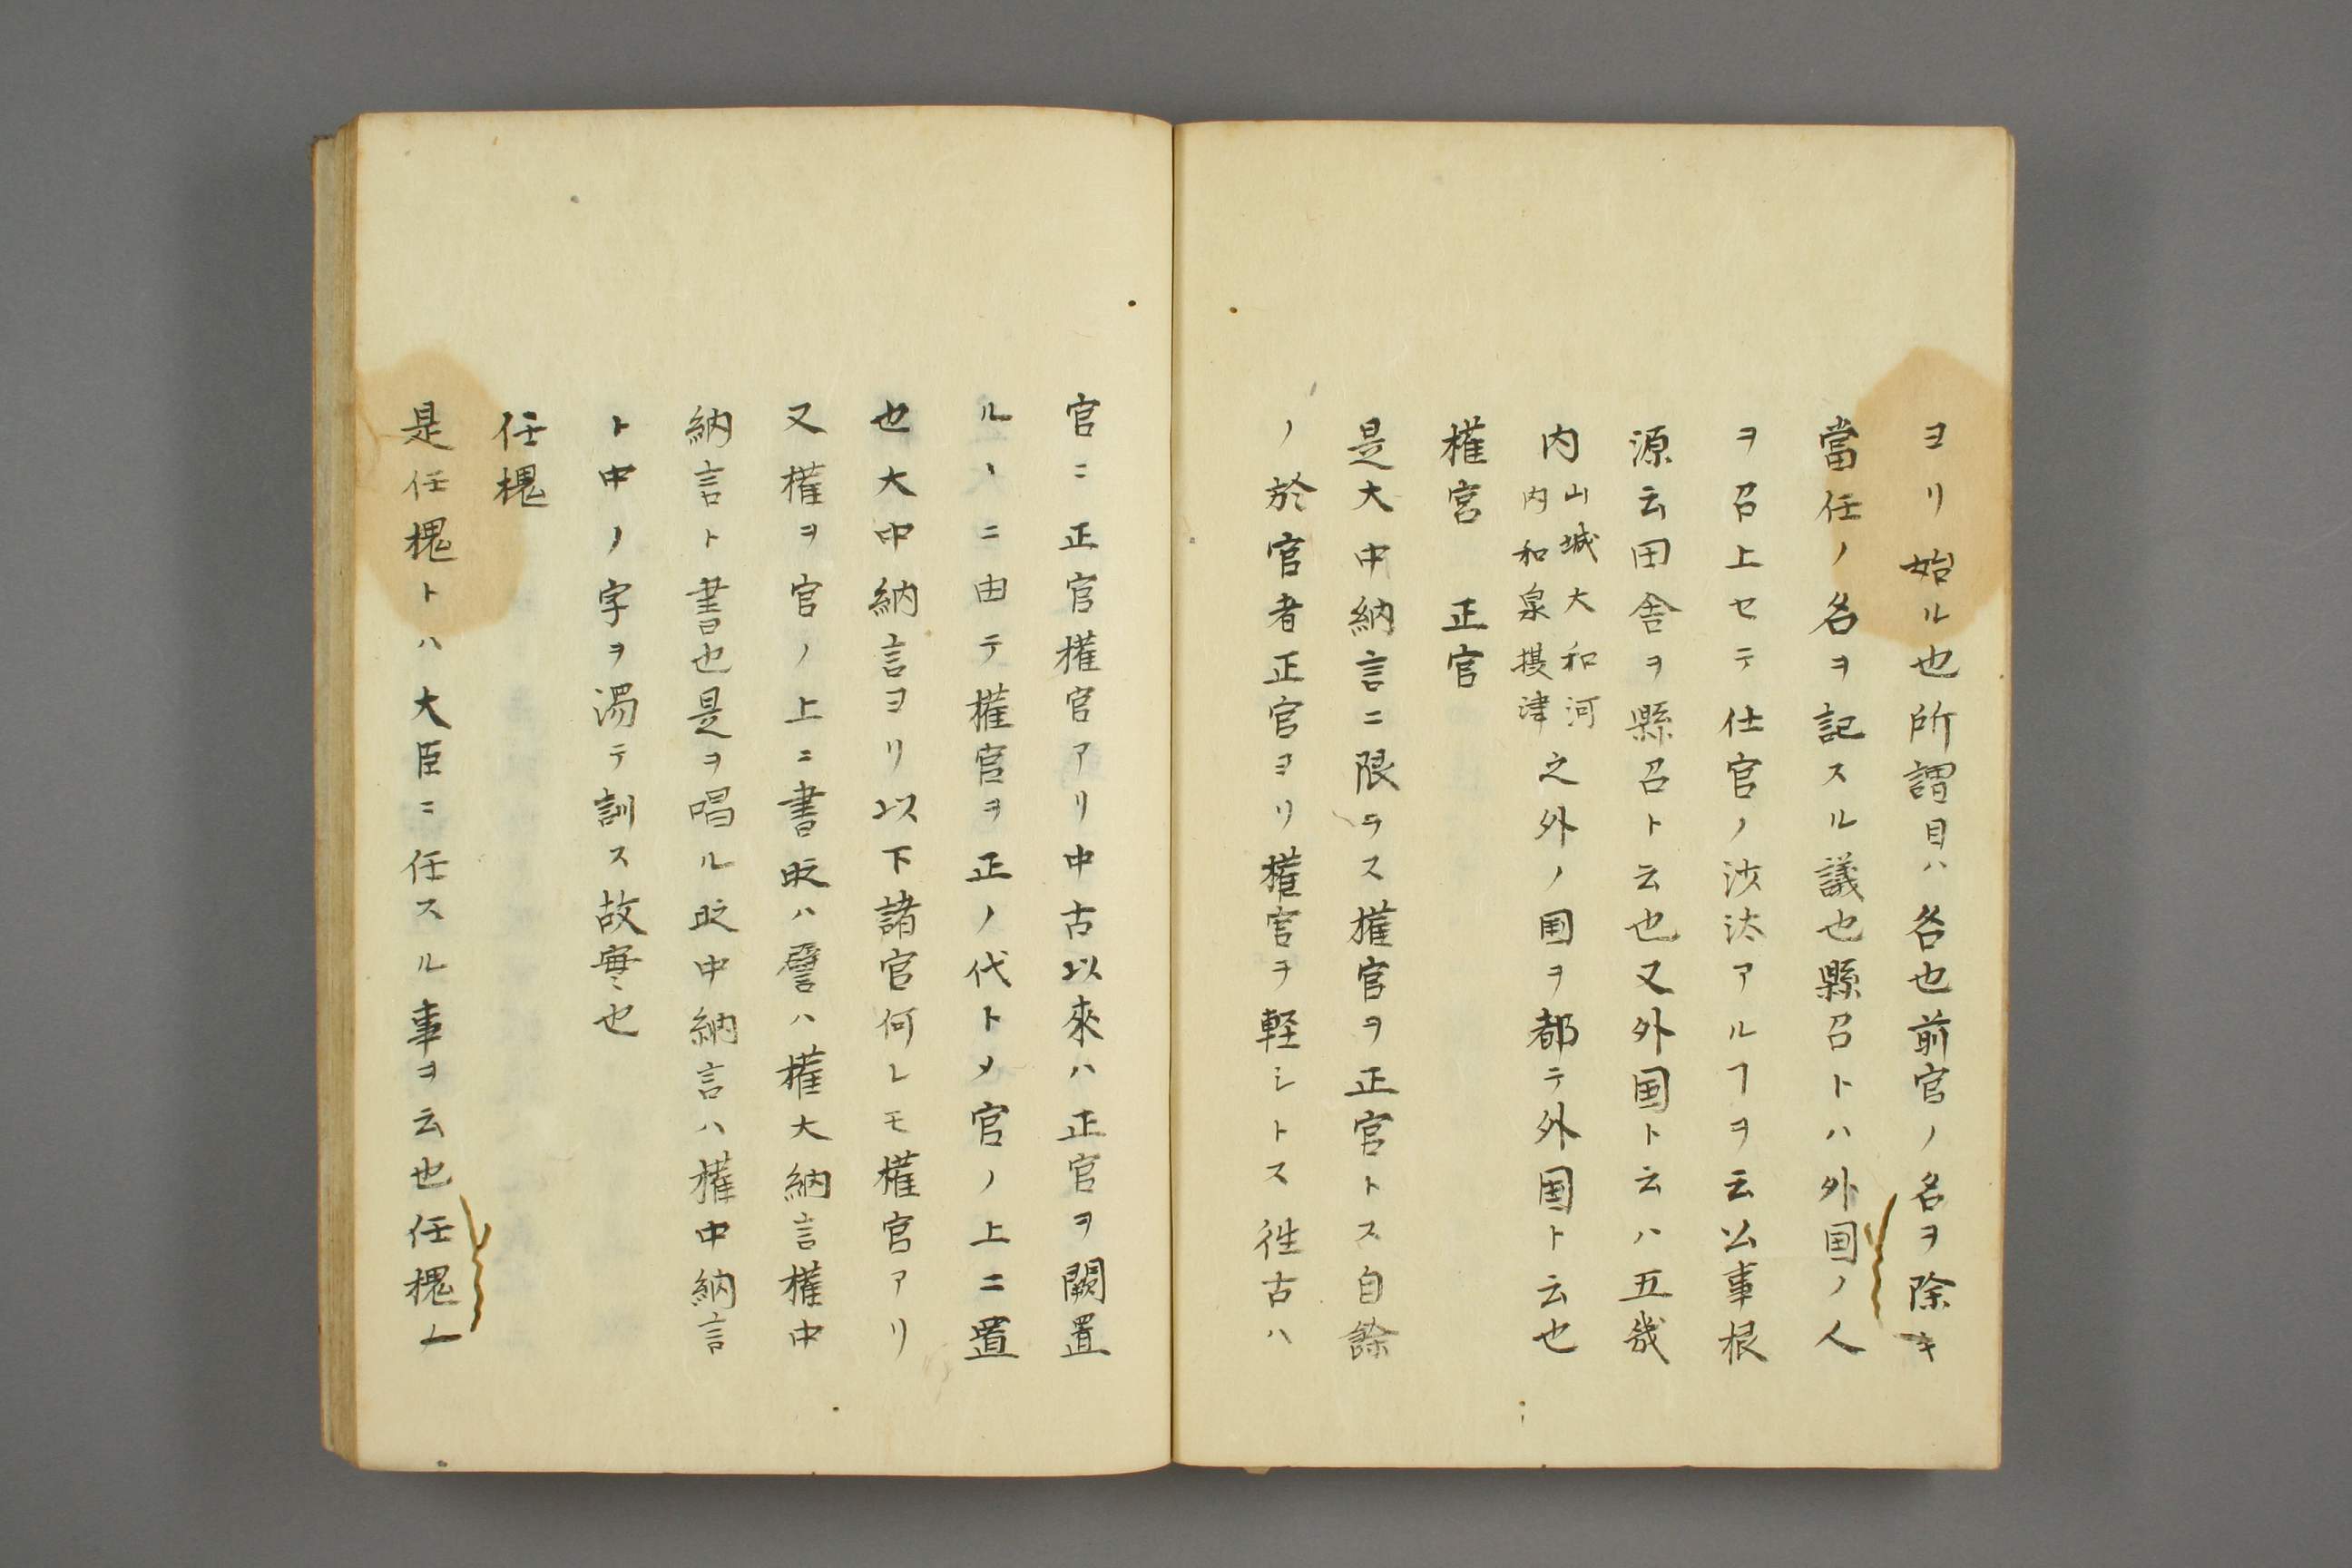 ヨリ始ル也所謂目ハ各也前官ノ名ヲ除キ
當任ノ名ヲ記スル議也縣召トハ外国ノ人
ヲ召上セテ仕官ノ沙汰アルヿヲ云公事根
源云田舎ヲ縣召ト云也又外国ト云ハ五畿
内
山城大和河
内和泉摂津
之外ノ国ヲ都テ外国ト云也
権官 正官
是大中納言ニ限ラス権官ヲ正官トス自餘
ノ於官者正官ヨリ権官ヲ軽シトス徃古ハ
官ニ正官権官アリ中古以來ハ正官ヲ闕置
ルヽニ由テ権官ヲ正ノ代トメ官ノ上ニ置
也大中納言ヨリ以下諸官何レモ権官アリ
又権ヲ官ノ上ニ書㕝ハ譬ハ権大納言権中
納言ト書也是ヲ唱ル㕝中納言ハ権中納言
ト中ノ字ヲ濁テ訓ス故実也
任槐
是任槐トハ大臣ニ任スル事ヲ云也任槐ノ